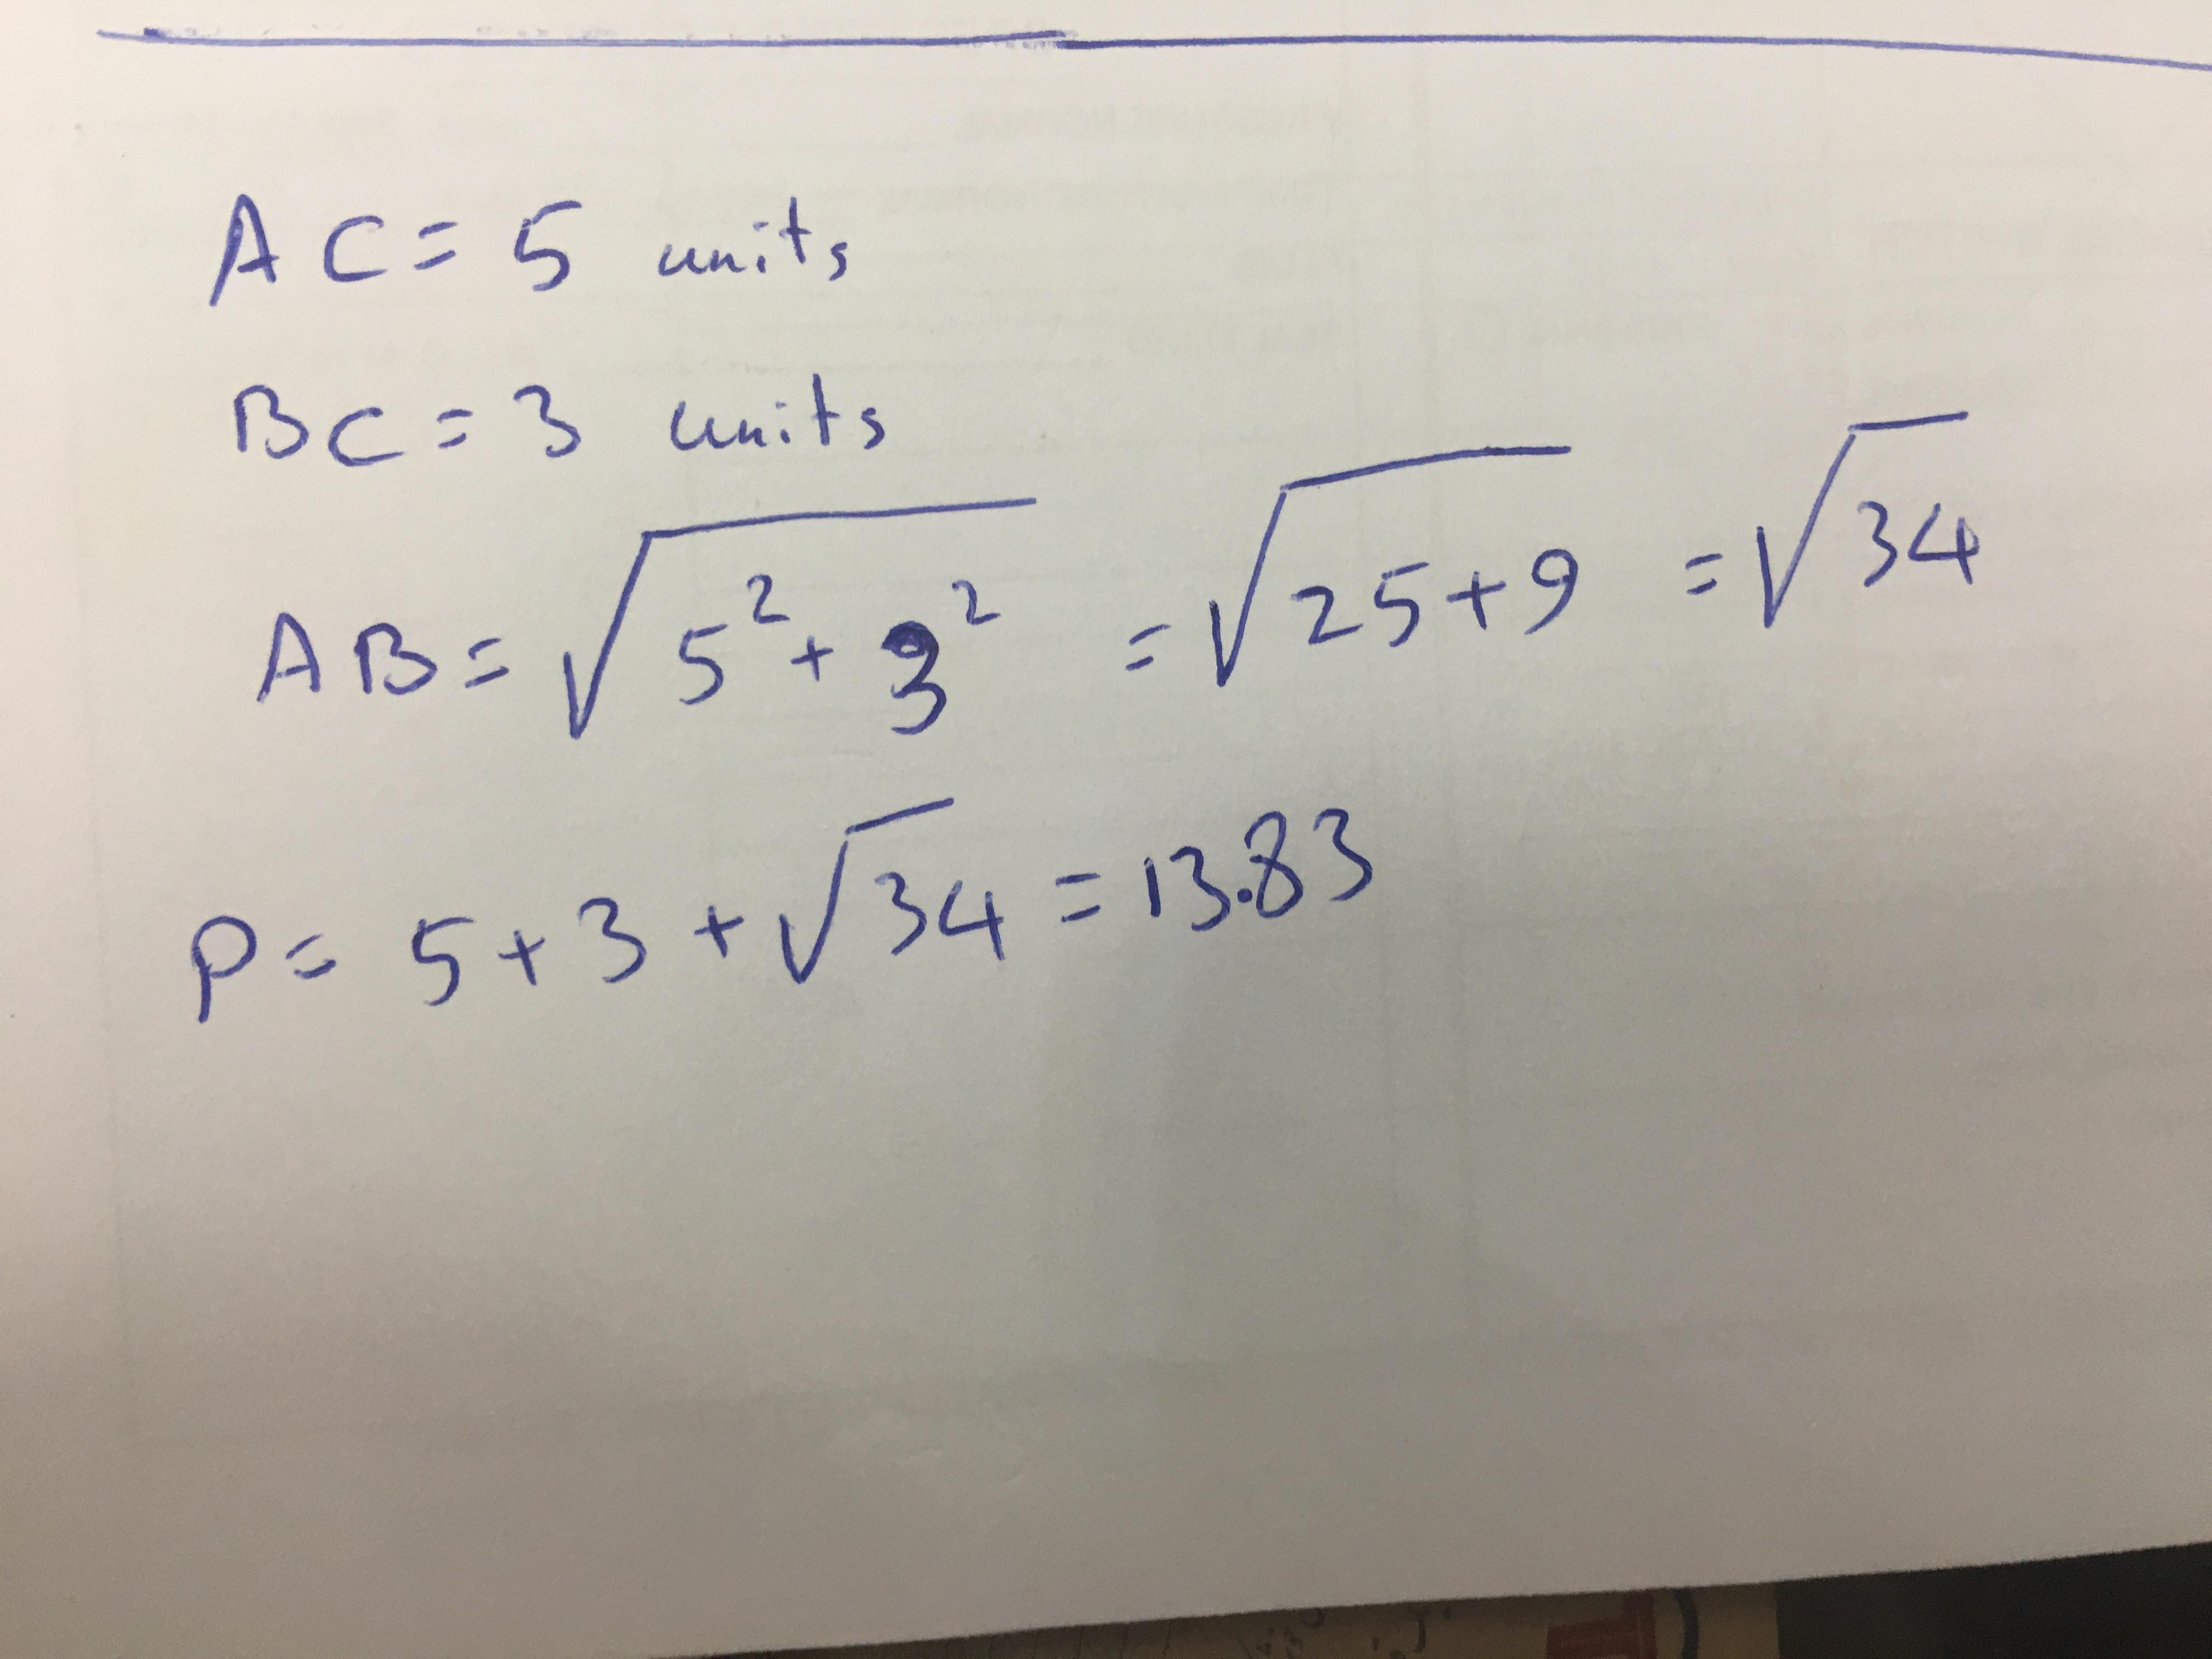 AC = 5 units
BC = 3 units
AB = √5² + 3² = √25+9 = √34
P = 5 + 3 + √34 = 13.83